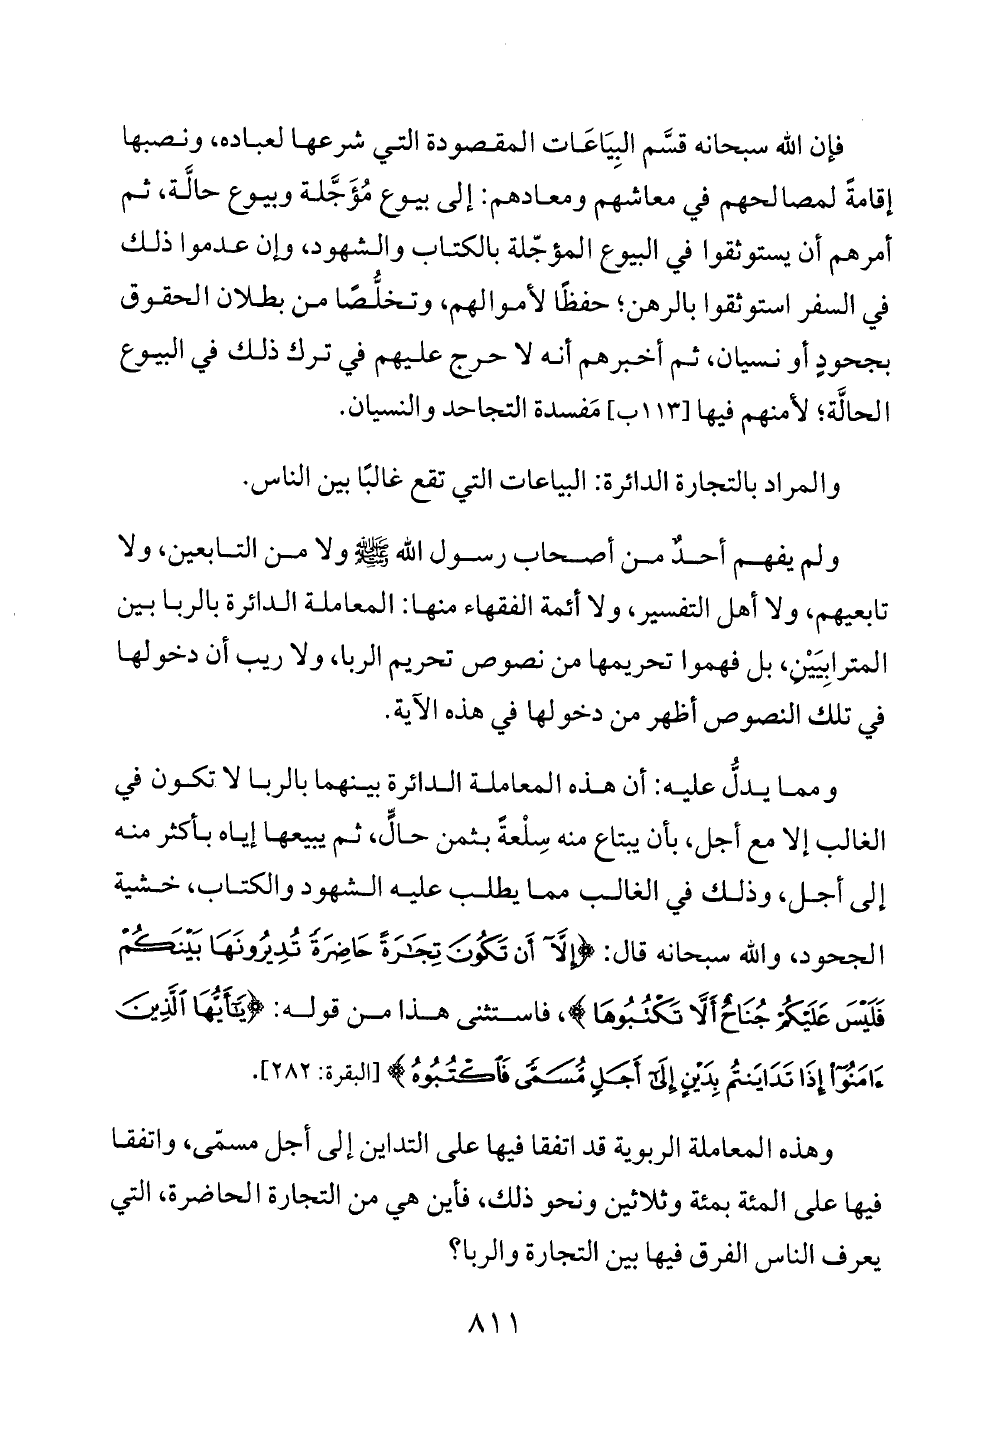 فإن الله سبحانه قسَّم البِيَاعَات المقصودة التي شرعها لعباده، ونصبها
إقامةً لمصالحهم في معاشهم ومعادهم: إلى بيوع مُؤَجَّلة وبيوع حالَّة، ثم
أمرهم أن يستوثقوا في البيوع المؤجّلة بالكتاب والشهود، وإن عدموا ذلك
في السفر استوثقوا بالرهن؛ حفظًا لأموالهم، وتخلُّصًا من بطلان الحقوق
بجحودٍ أو نسيان، ثم أخبرهم أنه لا حرج عليهم في ترك ذلك في البيوع
الحالَّة؛ لأمنهم فيها [١١٣ب] مَفسدة التجاحد والنسيان.
والمراد بالتجارة الدائرة: البياعات التي تقع غالبًا بين الناس.
ولم يفهم أحدٌ من أصحاب رسول الله ﷺ ولا من التابعين، ولا
تابعيهم، ولا أهل التفسير، ولا أئمة الفقهاء منها: المعاملة الدائرة بالربا بين
المترابِيَيْنِ، بل فهموا تحريمها من نصوص تحريم الربا، ولا ريب أن دخولها
في تلك النصوص أظهر من دخولها في هذه الآية.
ومما يدلُّ عليه: أن هذه المعاملة الدائرة بينهما بالربا لا تكون في
الغالب إلا مع أجل، بأن يبتاع منه سِلْعةً بثمن حالٍّ، ثم يبيعها إياه بأكثر منه
إلى أجل، وذلك في الغالب مما يطلب عليه الشهود والكتاب، خشية
الجحود، والله سبحانه قال: ﴿إِلَّآ أَن تَكُونَ تِجَٰرَةً حَاضِرَةً تُدِيرُونَهَا بَيْنَكُمْ
فَلَيْسَ عَلَيْكُمْ جُنَاحٌ أَلَّا تَكْتُبُوهَا﴾، فاستثنى هذا من قوله: ﴿يَٰٓأَيُّهَا ٱلَّذِينَ
ءَامَنُوٓا۟ إِذَا تَدَايَنتُم بِدَيْنٍ إِلَىٰٓ أَجَلٍ مُّسَمًّى فَٱكْتُبُوهُ﴾ [البقرة: ٢٨٢].
وهذه المعاملة الربوية قد اتفقا فيها على التداين إلى أجل مسمّى، واتفقا
فيها على المئة بمئة وثلاثين ونحو ذلك، فأين هي من التجارة الحاضرة، التي
يعرف الناس الفرق فيها بين التجارة والربا؟
٨١١